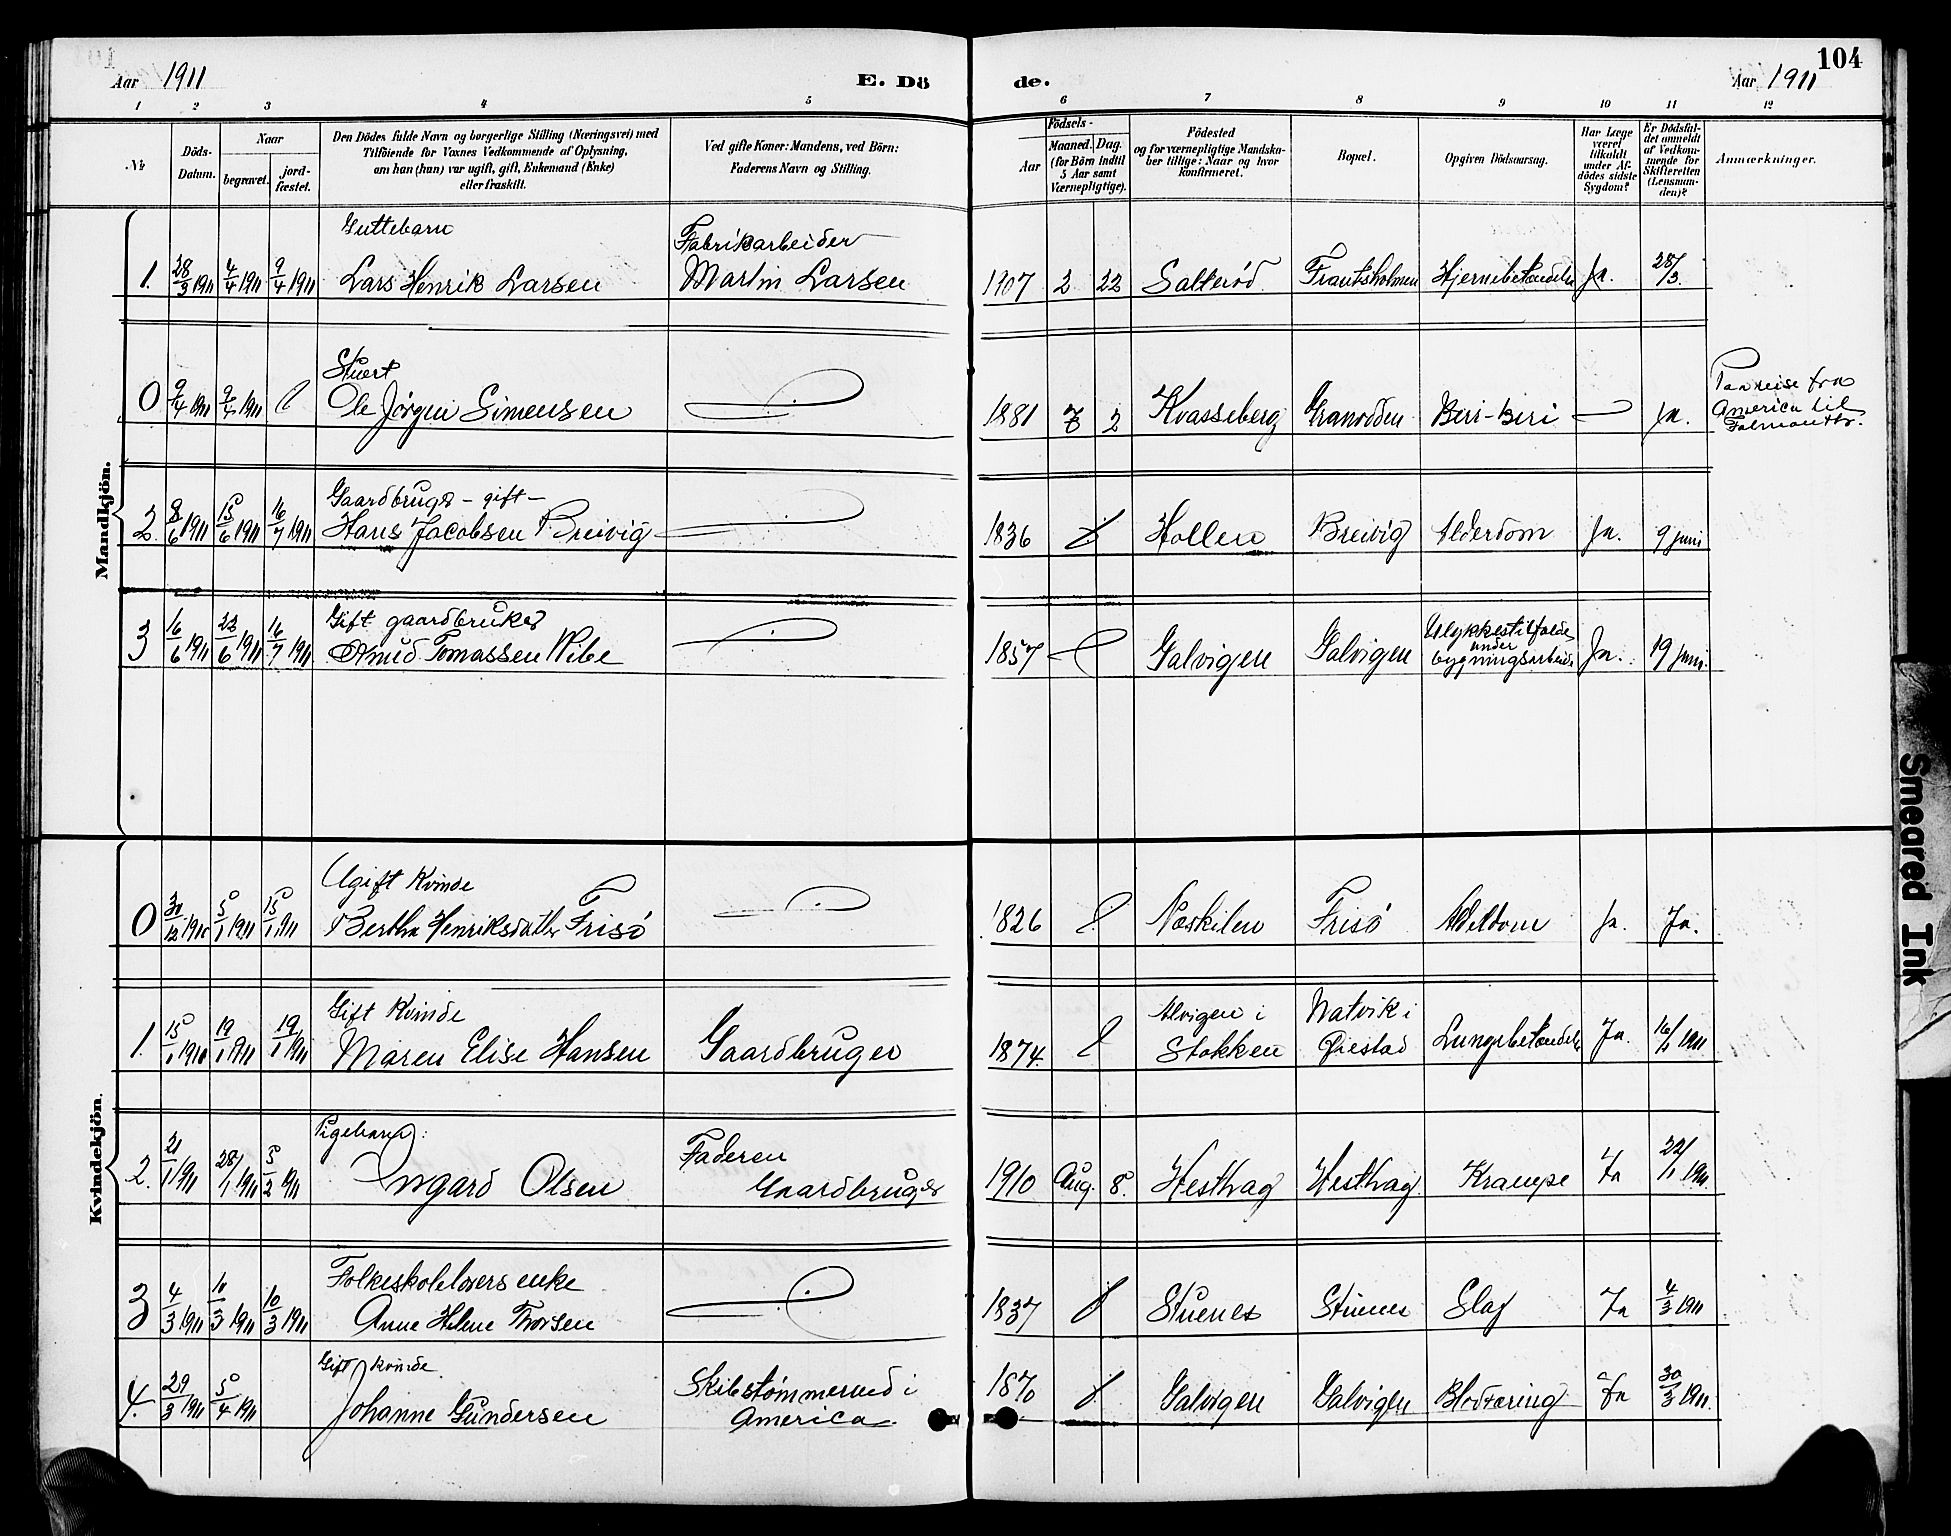 104
Aar 1911
E. Dö
de.
Aar 1911
1 2 3 4 5 6 7 8 9 10 11 12
№
Döds-
Datum.
Naar
begravet.
jord-
fæstet.
Den Dödes fulde Navn og borgerlige Stilling (Næringsvei) med
Tilföiende for Voxnes Vedkommende af Oplysning,
om han (hun) var ugift, gift, Enkemand (Enke)
eller fraskilt.
Ved gifte Koner: Mandens, ved Börn:
Faderens Navn og Stilling.
Födsels-
Aar
Maaned. Dag.
(for Börn indtil
5 Aar samt
Værnepligtige).
Födested
og for værnepligtige Mandska-
ber tillige: Naar og hvor
konfirmeret.
Bopæl.
Opgiven Dödsaarsag.
Har Læge
været
tilkaldt
under Af-
dödes sidste
Sygdom?
Er Dödsfal-
det anmeldt
af Vedkom-
mende for
Skifteretten
(Lensman-
den)?
Anmærkninger.
Mandkjön.
Guttebarn
Fabrikarbeider
1. 28/3 1911 4/4 1911 9/4 1911 Lars Henrik Larsen Martin Larsen 1907 2 22 Salterød Frantsholmen Hjernebetændelse Ja. 28/3.
Stuert
0 9/4 1911 9/4 1911 Ole Jörgen Simensen 1881 7 2 Kvasseberg Granodden Beri-Beri — Ja.
Paa reise fra
America til
Falmouth.
Gaardbruger - gift -
2. 8/6 1911 15/6 1911 16/7 1911 Hans Jacobsen Breivig 1836 Hollen Breivig Alderdom Ja. 9 juni
Gift gaardbruker
3 16/6 1911 22/6 1911 16/7 1911 Knud Tomassen Wibe 1857 Galvigen Galvigen Ulykkestilfælde
under
bygningsarbeide
Ja. 19 juni
Kvindekjön.
Ugift Kvinde
0 30/12 1910 5/1 1911 15/1 1911 Bertha Henriksdatter Frisö 1826 Næskilen Frisö Alderdom Ja. Ja.
Gift Kvinde
1. 15/1 1910 19/1 1911 19/1 1911 Maren Elise Hansen Gaardbruger 1874.
Alvigen i
Stokken
Natvik i
Øiestad
Lungebetændelse Ja. 16/1 1911
Pigebarn:
2. 21/1 1911 28/1 1911 5/2 1911 Ingard Olsen
Faderen
Gaardbruger
1910 Aug. 8. Hesthag Hesthag Krampe Ja 22/1 1911.
Folkeskolelærers enke
3 4/3 1911 10/3 1911 10/3 1911 Anne Helene Thorsen 1837 Stuenes Stuenes Slag Ja 4/3 1911
Gift kvinde.
4. 29/3 1911 5/4 1911 Johanne Gundersen
Skibstømmermed i
America.
1870 Galvigen Galvigen Blodtæring Ja 30/3 1911.
Smeared Ink